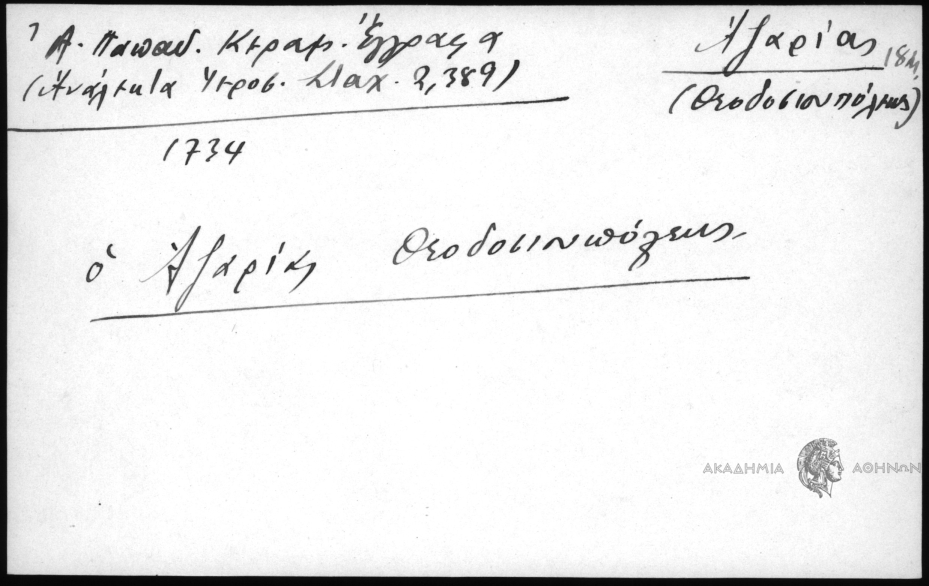 Ἀ. Παπαδ. Κεραμ. Ἔγγραφα
(Ἀνάλεκτα Ἱεροσ. Σταχ. 2,389)
Ἀζαρίας 18
(Θεοδοσιουπόλεως)
1734
ὁ Ἀζαρίας Θεοδοσιουπόλεως
ΑΚΑΔΗΜΙΑ ΑΘΗΝΩΝ